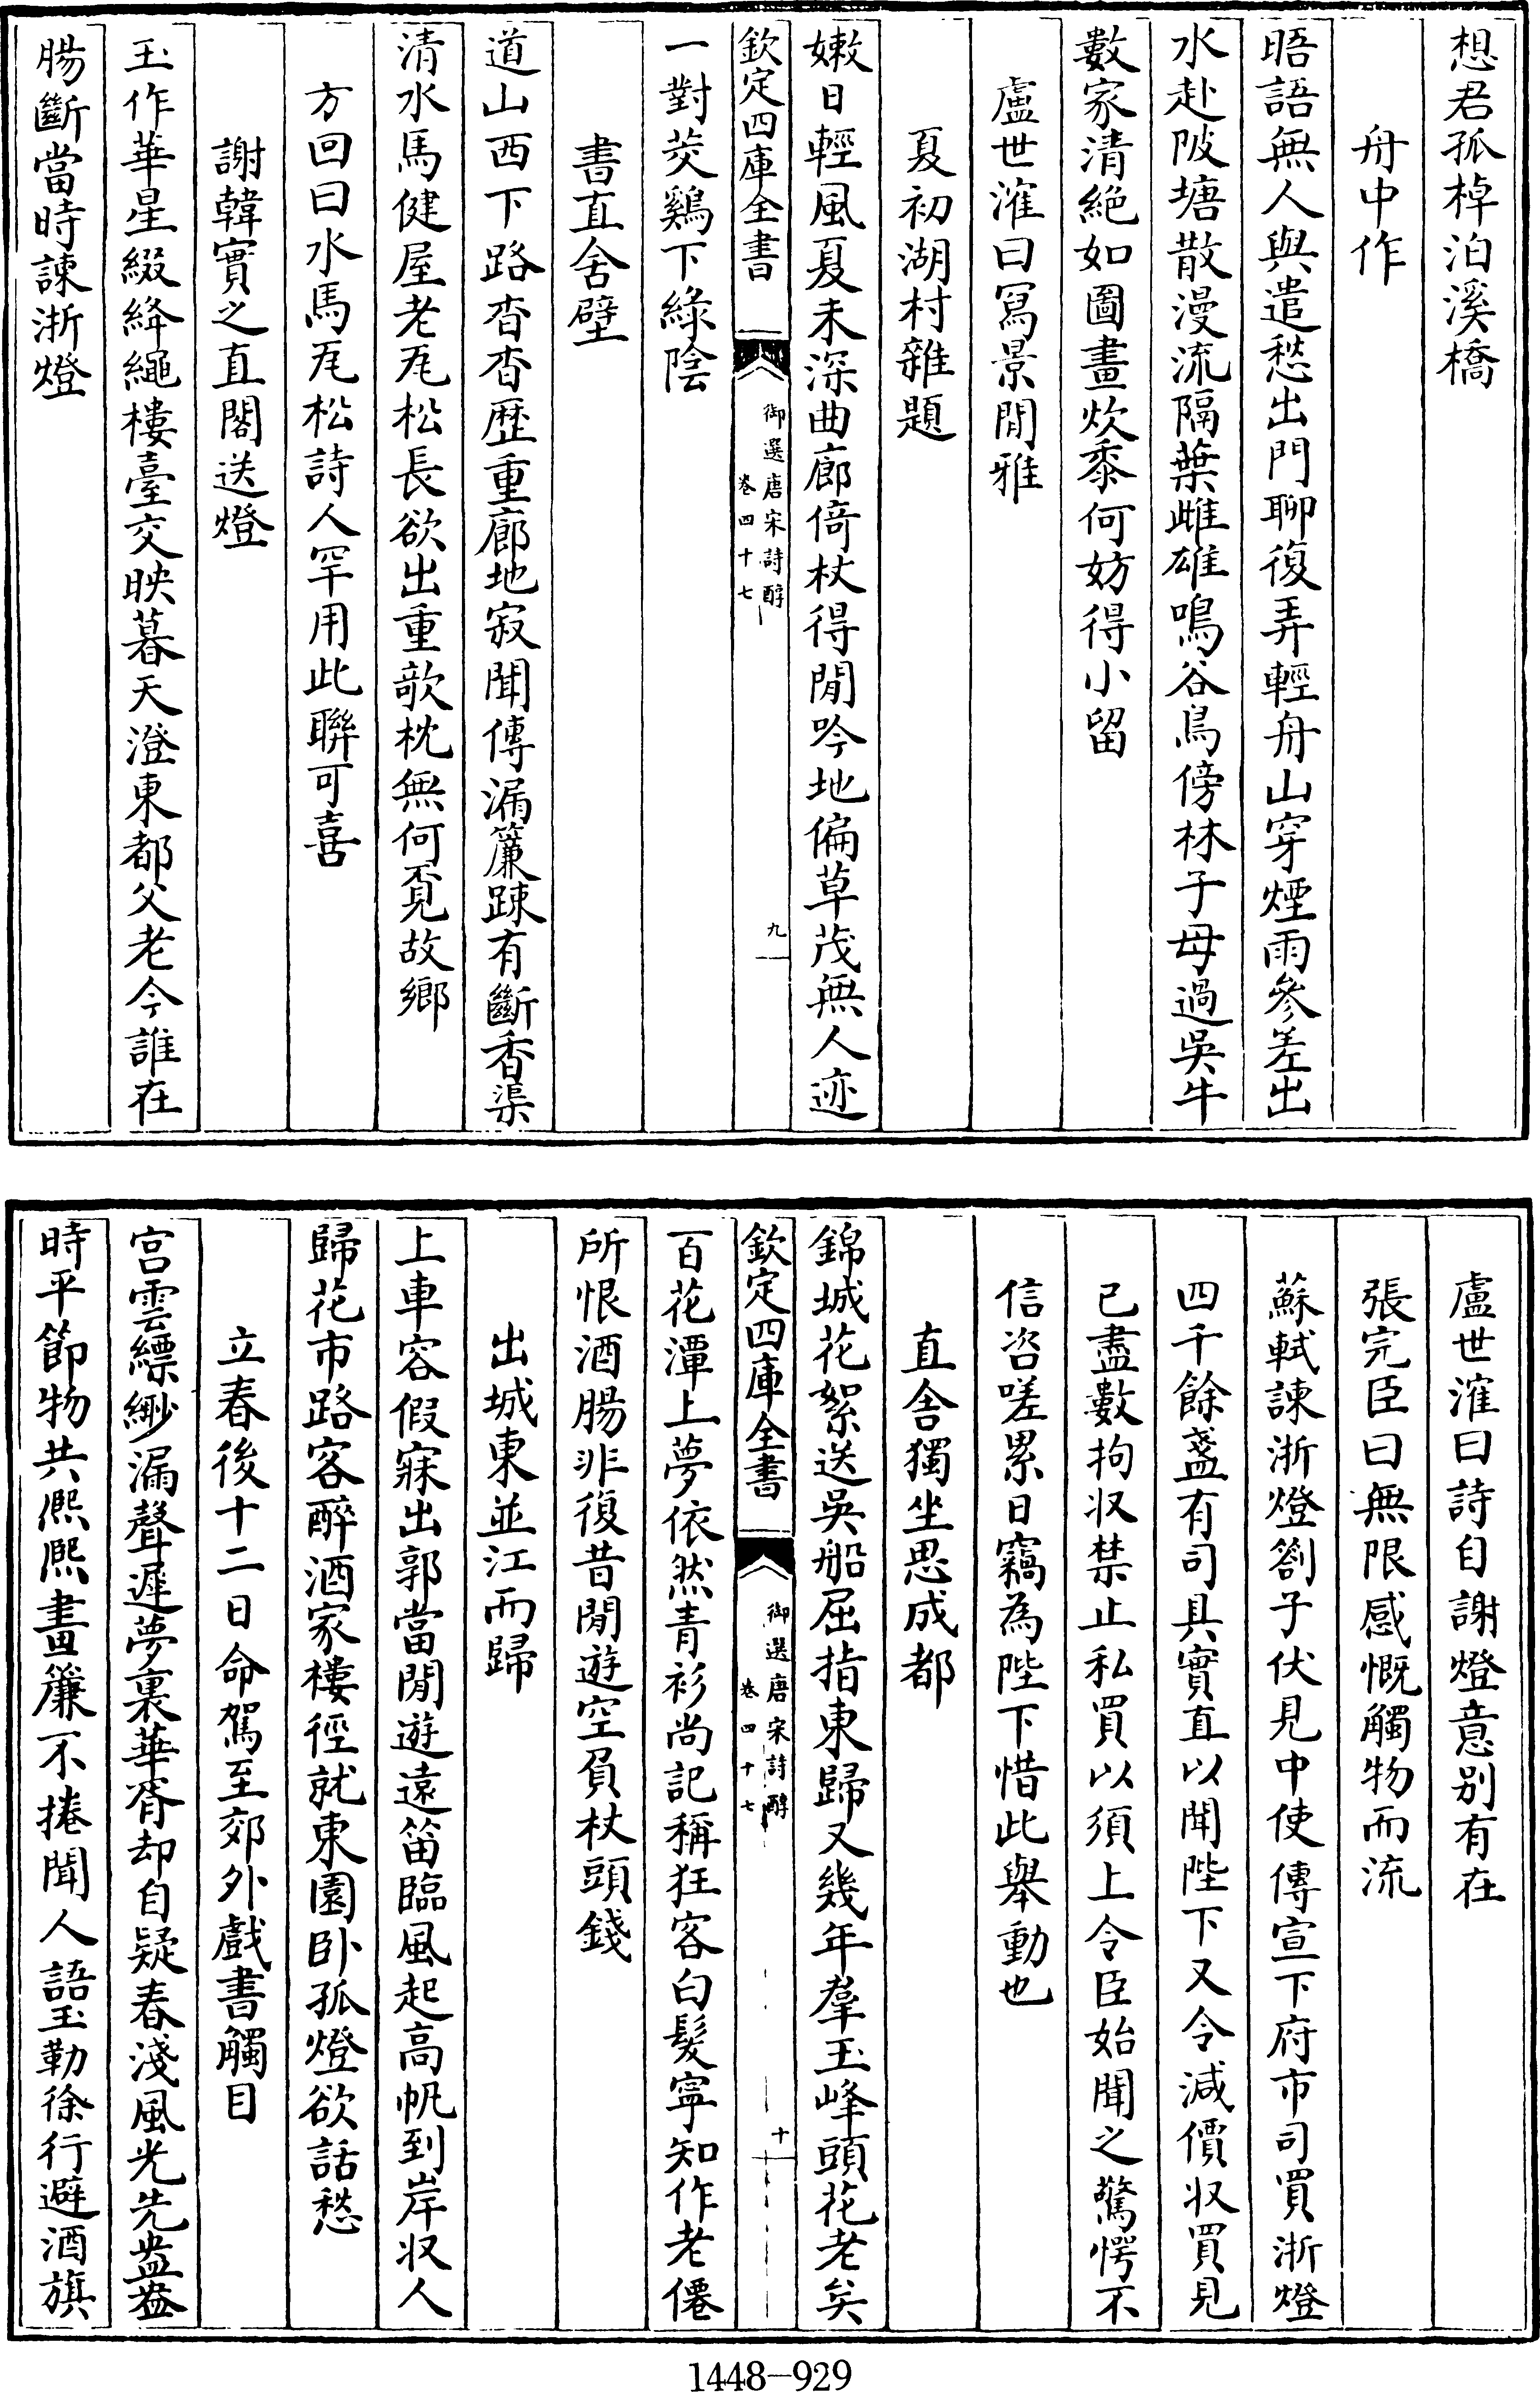 想君孤棹泊溪橋
舟中作
晤語無人與遣愁出門聊復弄輕舟山穿煙雨參差出
水赴陂塘散漫流隔葉雌雄鳴谷鳥傍林子母過吳牛
數家清絶如圖畫炊黍何妨得小留
盧世㴶曰冩景閒雅
夏初湖村雜題
嫩日輕風夏未深曲廊倚杖得閒吟地偏草茂無人迹
欽定四庫全書
御選唐宋詩醇
卷四十七
九
一對茭鷄下綠陰
書直舍壁
道山西下路杳杳歴重廊地寂聞傳漏簾踈有斷香渠
清水馬健屋老瓦松長欲出重欹枕無何覔故鄉
方回曰水馬瓦松詩人罕用此聯可喜
謝韓實之直閣送燈
玉作華星綴絳繩樓臺交映暮天澄東都父老今誰在
腸斷當時諫浙燈
盧世㴶曰詩自謝燈意别有在
張完臣曰無限感慨觸物而流
蘇軾諫浙燈劄子伏見中使傳宣下府市司買浙燈
四千餘盞有司具實直以聞陛下又令減價收買見
已盡數拘收禁止私買以須上令臣始聞之驚愕不
信咨嗟累日竊為陛下惜此舉動也
直舍獨坐思成都
錦城花絮送吳船屈指東歸又幾年羣玉峰頭花老矣
欽定四庫全書
御選唐宋詩醇
卷四十七
十
百花潭上夢依然青衫尚記稱狂客白髮寧知作老僊
所恨酒腸非復昔閒遊空負杖頭錢
出城東並江而歸
上車容假寐出郭當閒遊遠笛臨風起高帆到岸收人
歸花市路客醉酒家樓徑就東園卧孤燈欲話愁
立春後十二日命駕至郊外戲書觸目
宫雲縹緲漏聲遲夢裏華胥却自疑春淺風光先盎盎
時平節物共熈熈畫簾不捲聞人語玉勒徐行避酒旗
1448-929